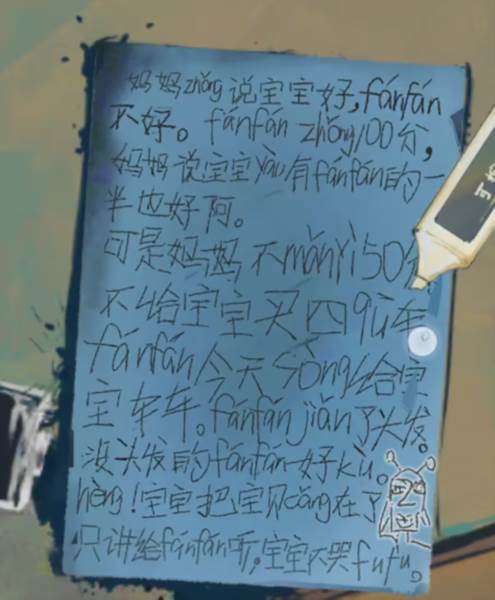 妈妈zhǒng说宝宝好,fánfán
不好。fánfán zhǒng100分,
妈妈说宝宝yàu有fánfán的一
半也好阿。
可是妈妈不mǎnyì50分
不给宝宝买四qū车
fánfán今天sòng给宝
宝车车。fánfán jiǎn了头发。
没头发的fánfán好kù。
hèng!宝宝把宝贝cáng在了
只讲给fánfán听。宝宝不哭fufu。